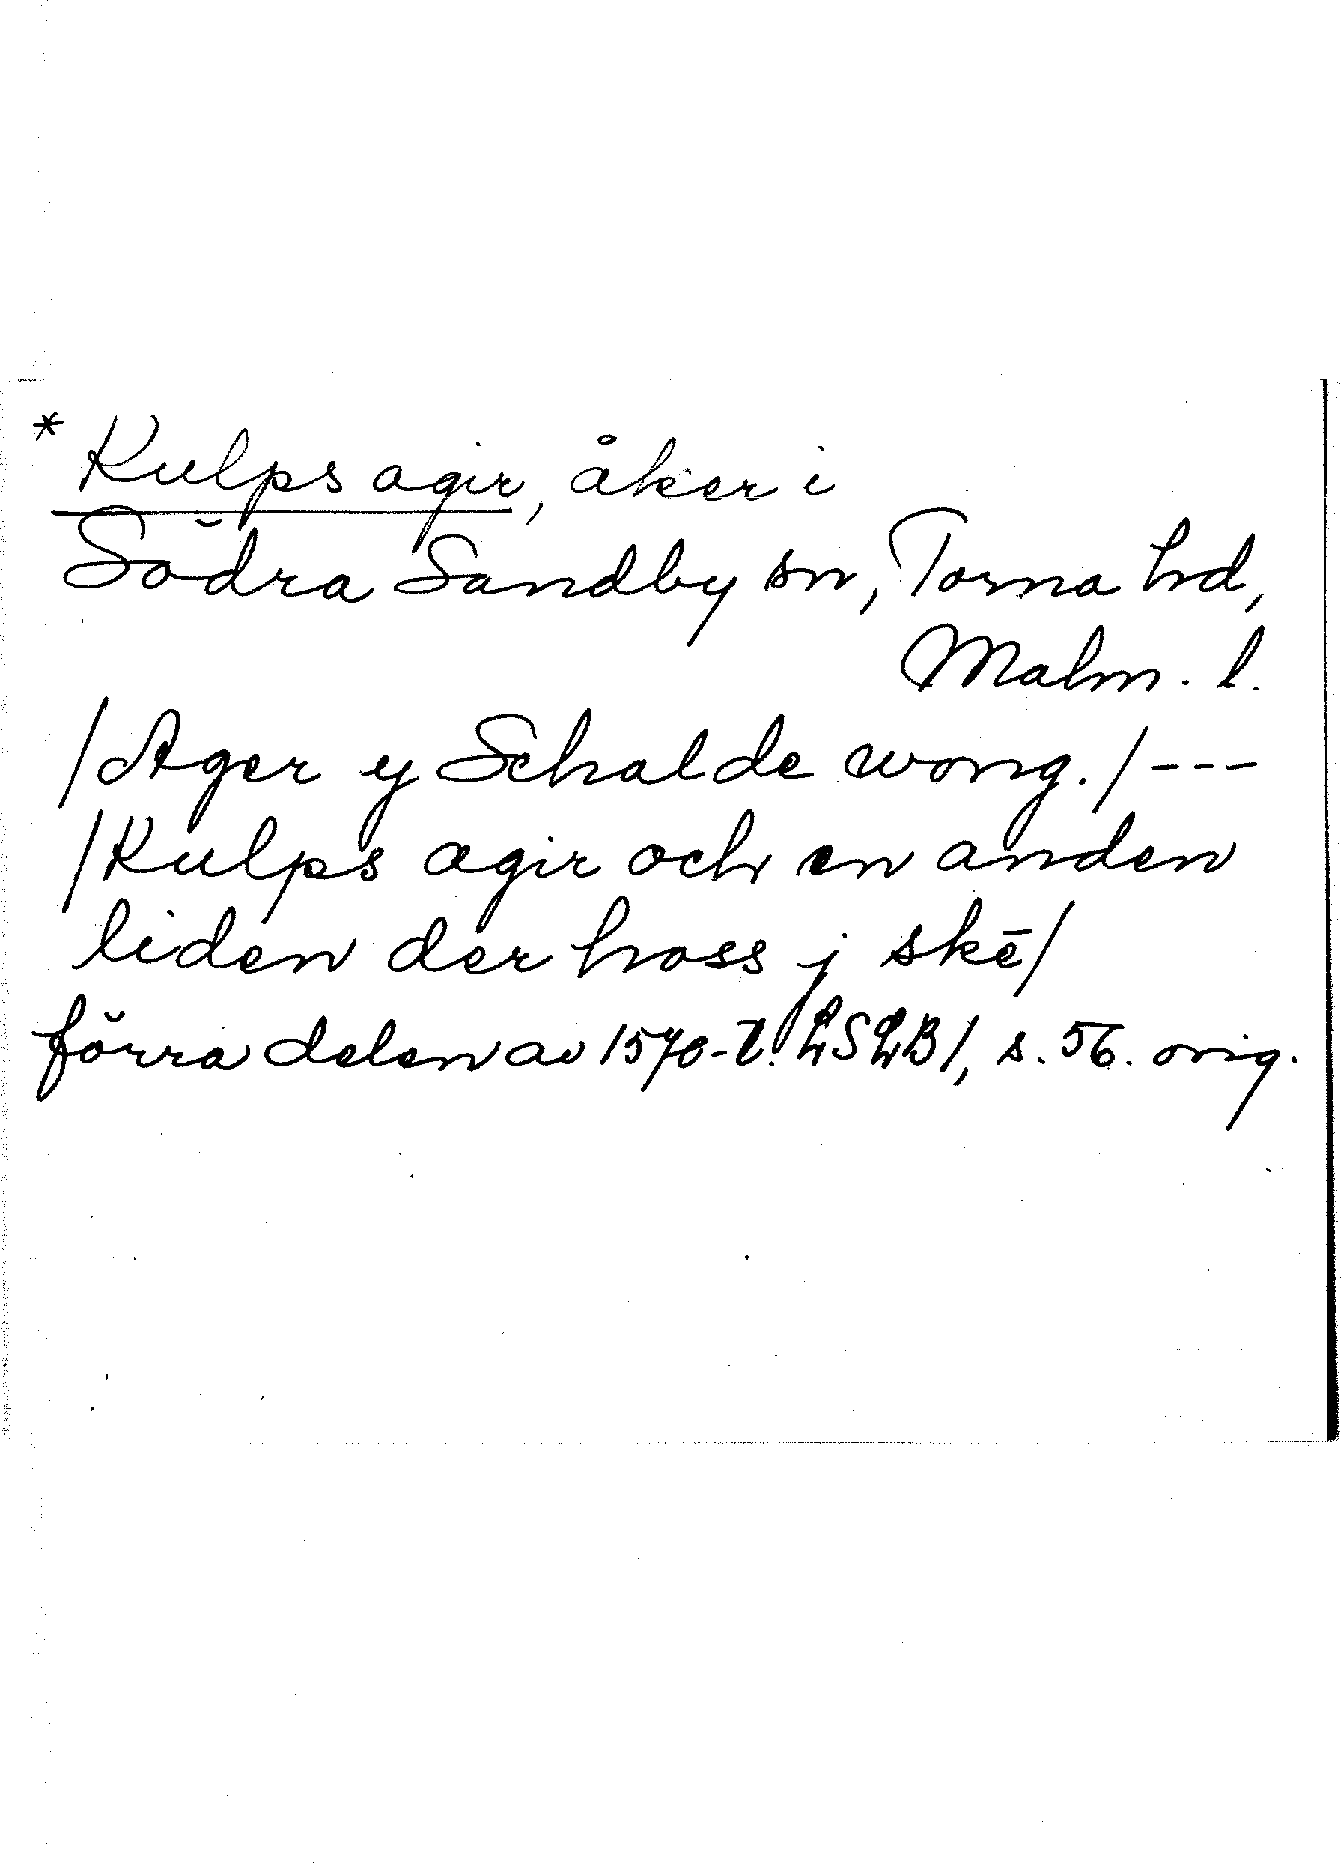 * Kulps agir, åker i
Södra Sandby sn, Torna hd,
Malm. l.
/Ager y Schalde wong./ ---
/Kulps agir och en anden
liden der hoss j skē/
förra delen av 1570-t. LSLB 1, s. 56. orig.